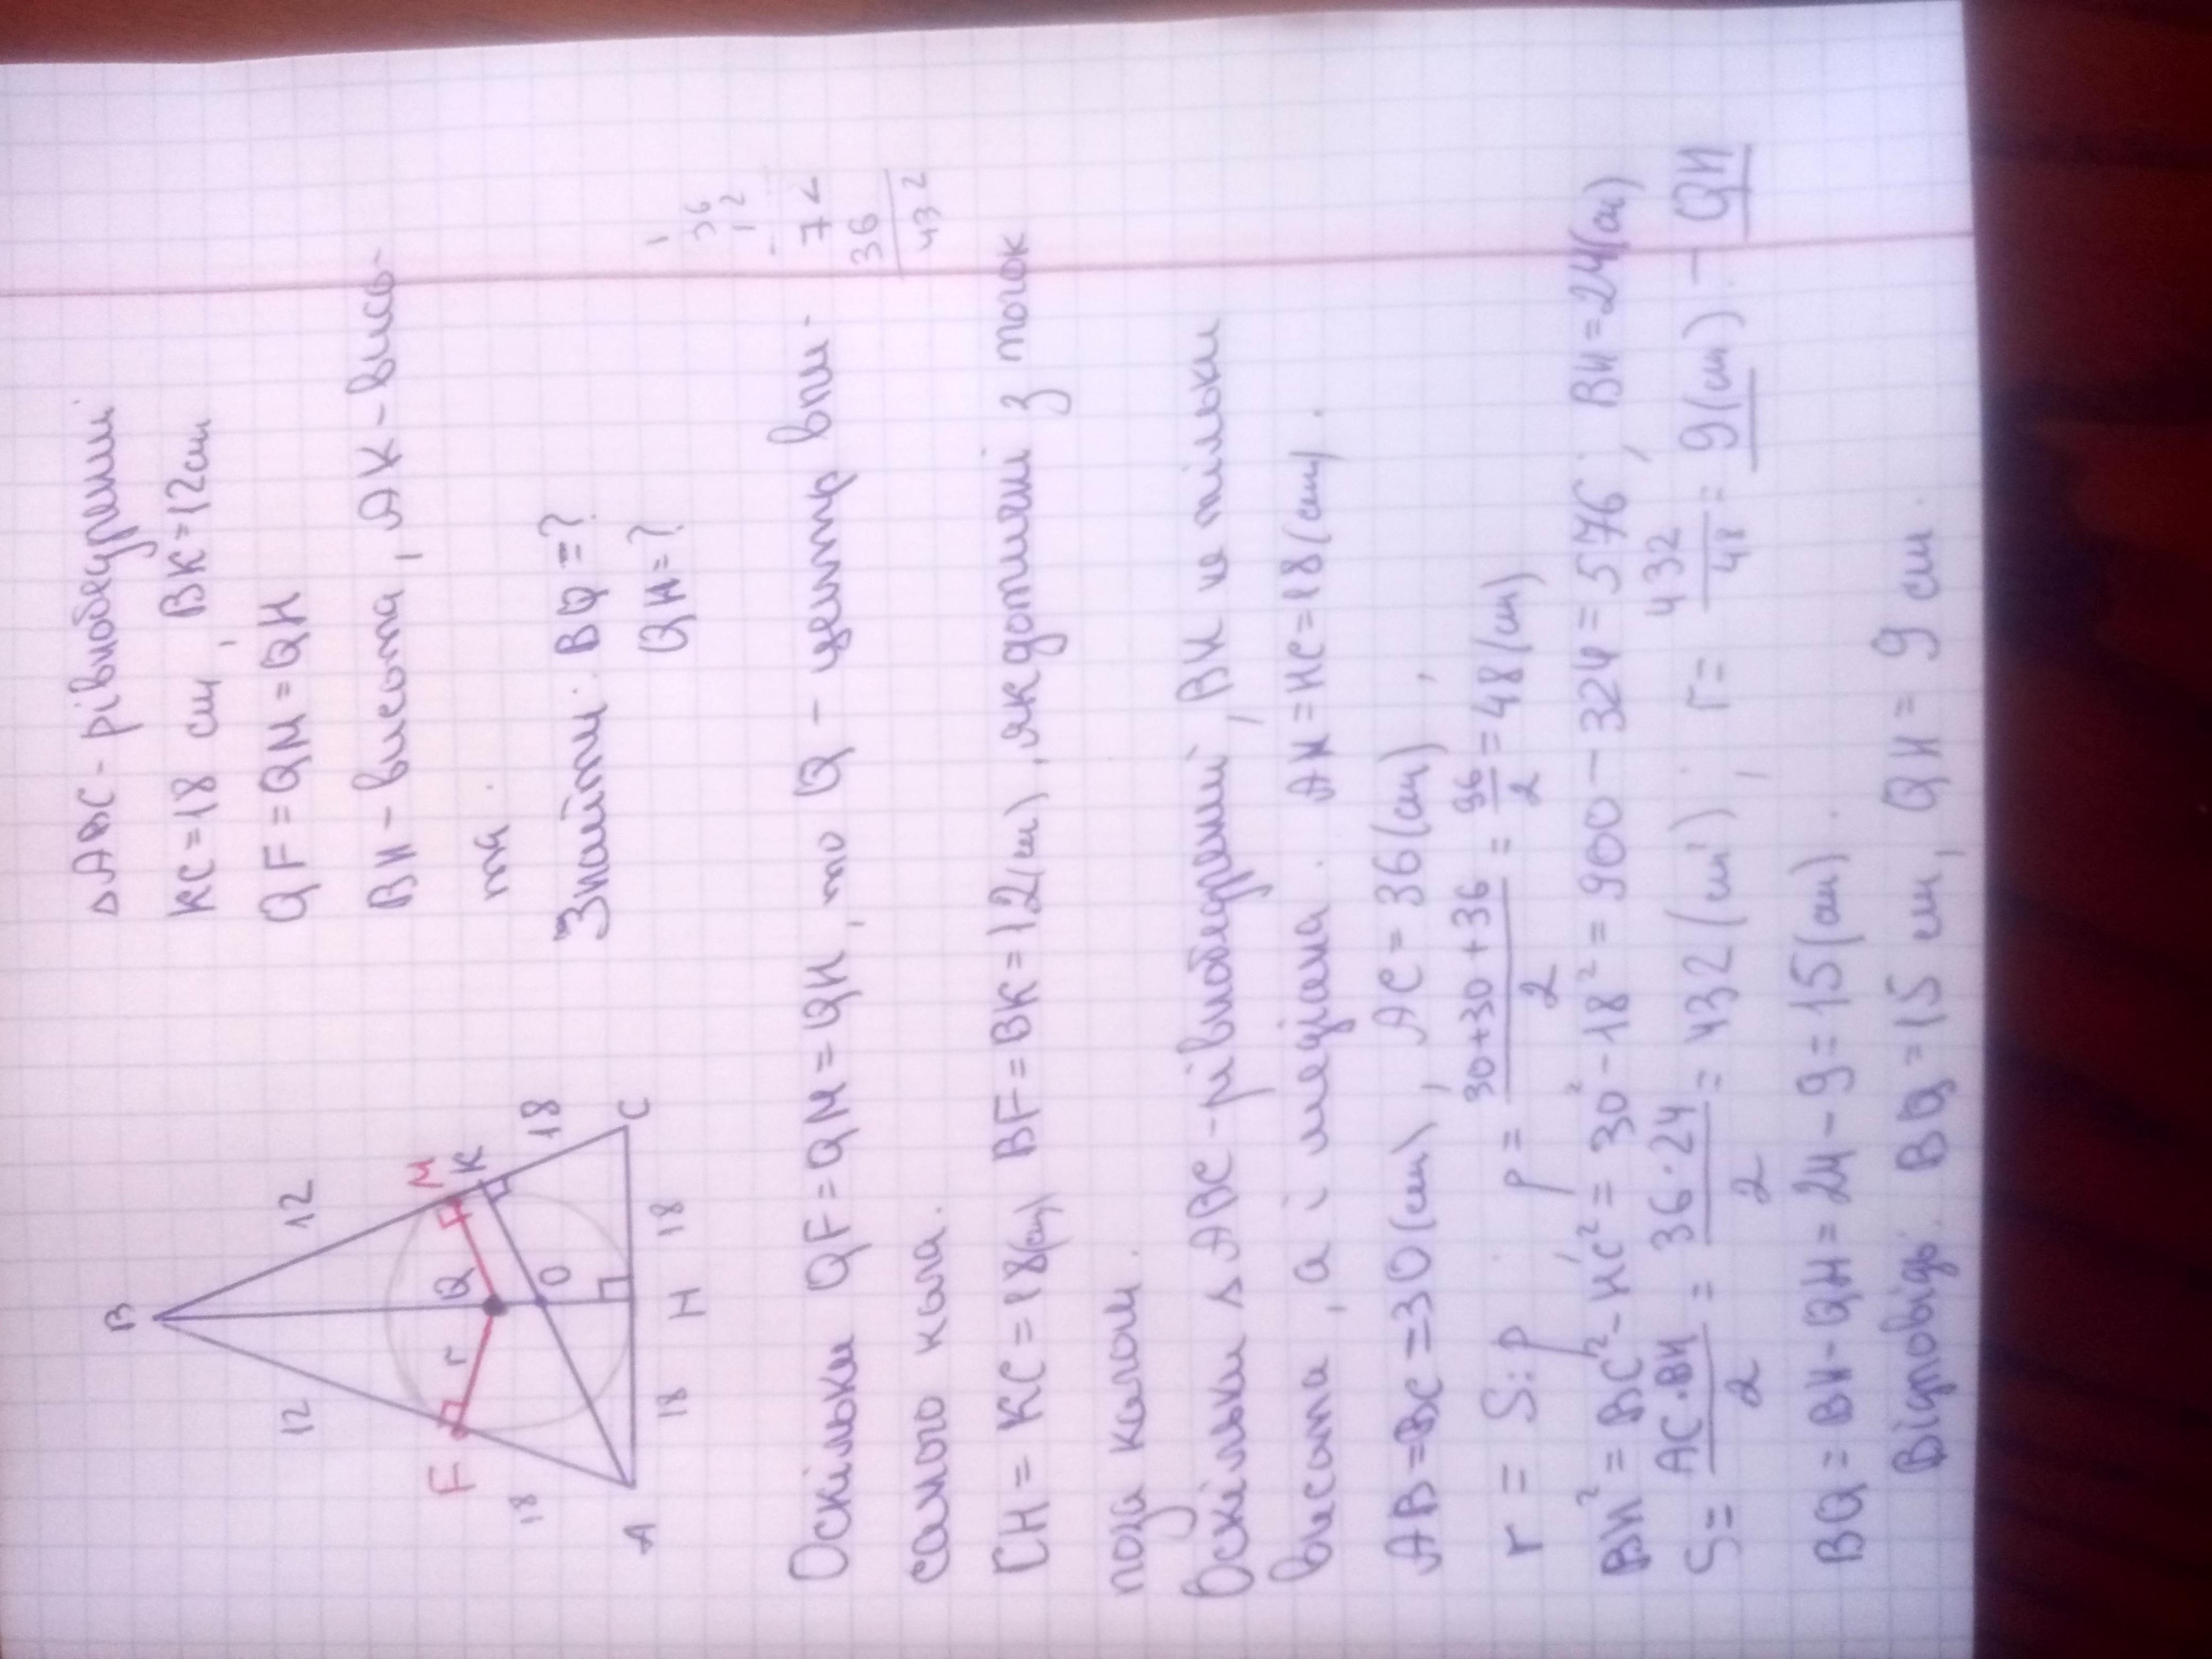 ΔABC - рівнобедрений
KC = 18 см, BK = 12 см
QF = QM = QH
BH - висота, AK - висо-
та.
Знайти: BQ = ?
QH = ?
B
12
12
F
M
K
r
Q
O
18
18
A
18
H
18
C
1
36
12
72
36
432
Оскільки QF = QM = QH, то Q - центр впи-
саного кола.
CH = KC = 18 (см) BF = BK = 12 (см), як дотичні з точок
поза колом.
Оскільки Δ ABC - рівнобедрений, BH не тільки
висота, а і медіана. AH = HC = 18 (см).
AB = BC = 30 (см), AC = 36 (см),
r = S : p p = 30+30+36/2 = 96/2 = 48 (см)
BH² = BC² - HC² = 30² - 18² = 900 - 324 = 576; BH = 24 (см)
S = AC·BH/2 = 36·24/2 = 432 (см²); r = 432/48 = 9 (см) - QH
BQ = BH - QH = 24 - 9 = 15 (см).
Відповідь: BQ = 15 см, QH = 9 см.